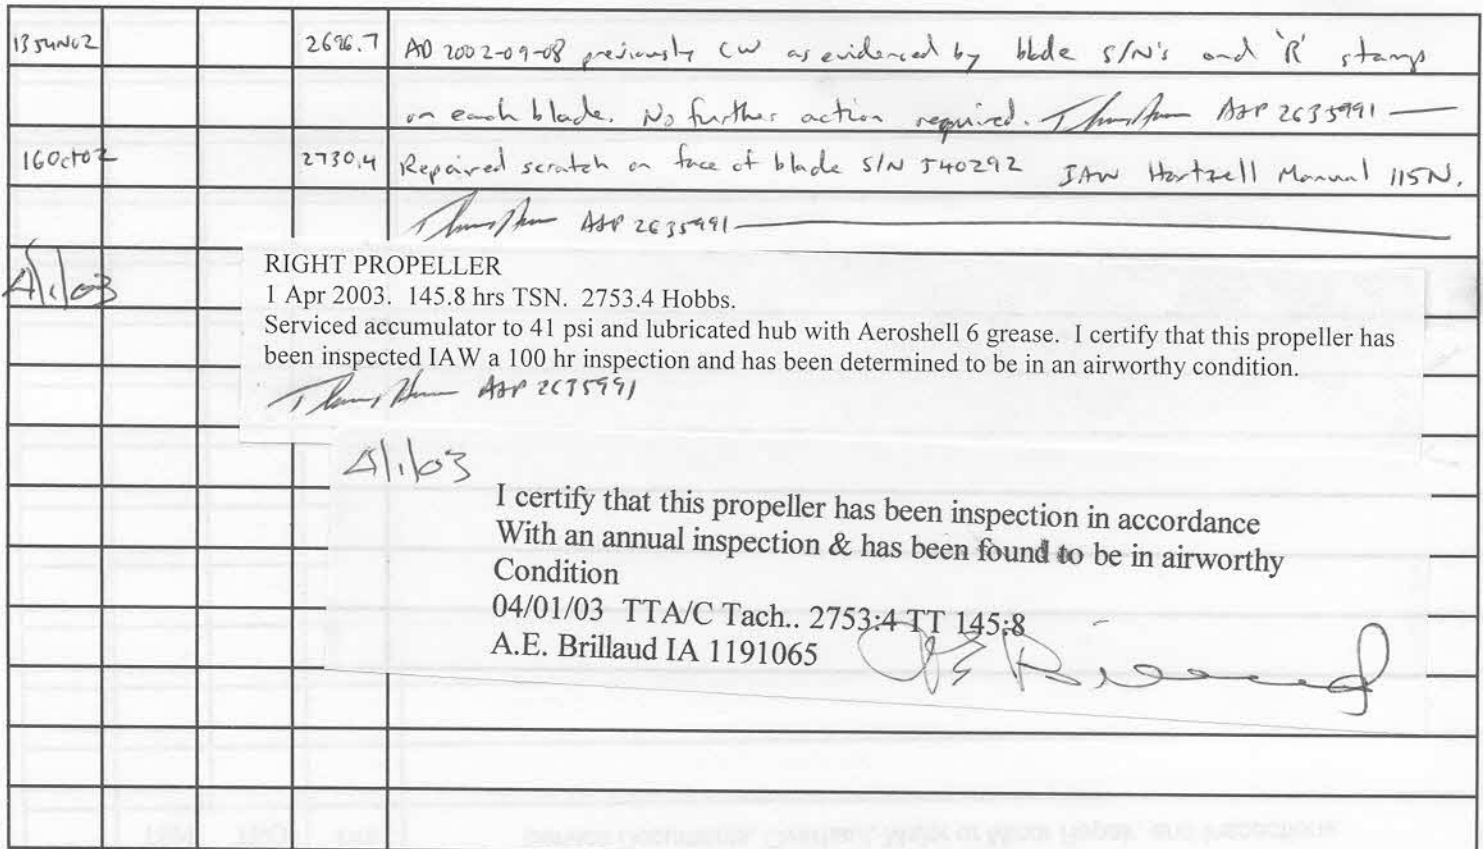 13 JUN 02 2696.7 AD 2002-09-08 previously CW as evidenced by blade S/N's and 'R' stamp
on each blade. No further action required. A&P 2635991
16 Oct 02 2730.4 Repaired scratch on face of blade S/N J40292 IAW Hartzell Manual 115N.
A&P 2635991
4/1/03
RIGHT PROPELLER
1 Apr 2003. 145.8 hrs TSN. 2753.4 Hobbs.
Serviced accumulator to 41 psi and lubricated hub with Aeroshell 6 grease. I certify that this propeller has
been inspected IAW a 100 hr inspection and has been determined to be in an airworthy condition.
A&P 2635991
4/1/03
I certify that this propeller has been inspection in accordance
With an annual inspection & has been found to be in airworthy
Condition
04/01/03 TTA/C Tach.. 2753:4 TT 145:8
A.E. Brillaud IA 1191065